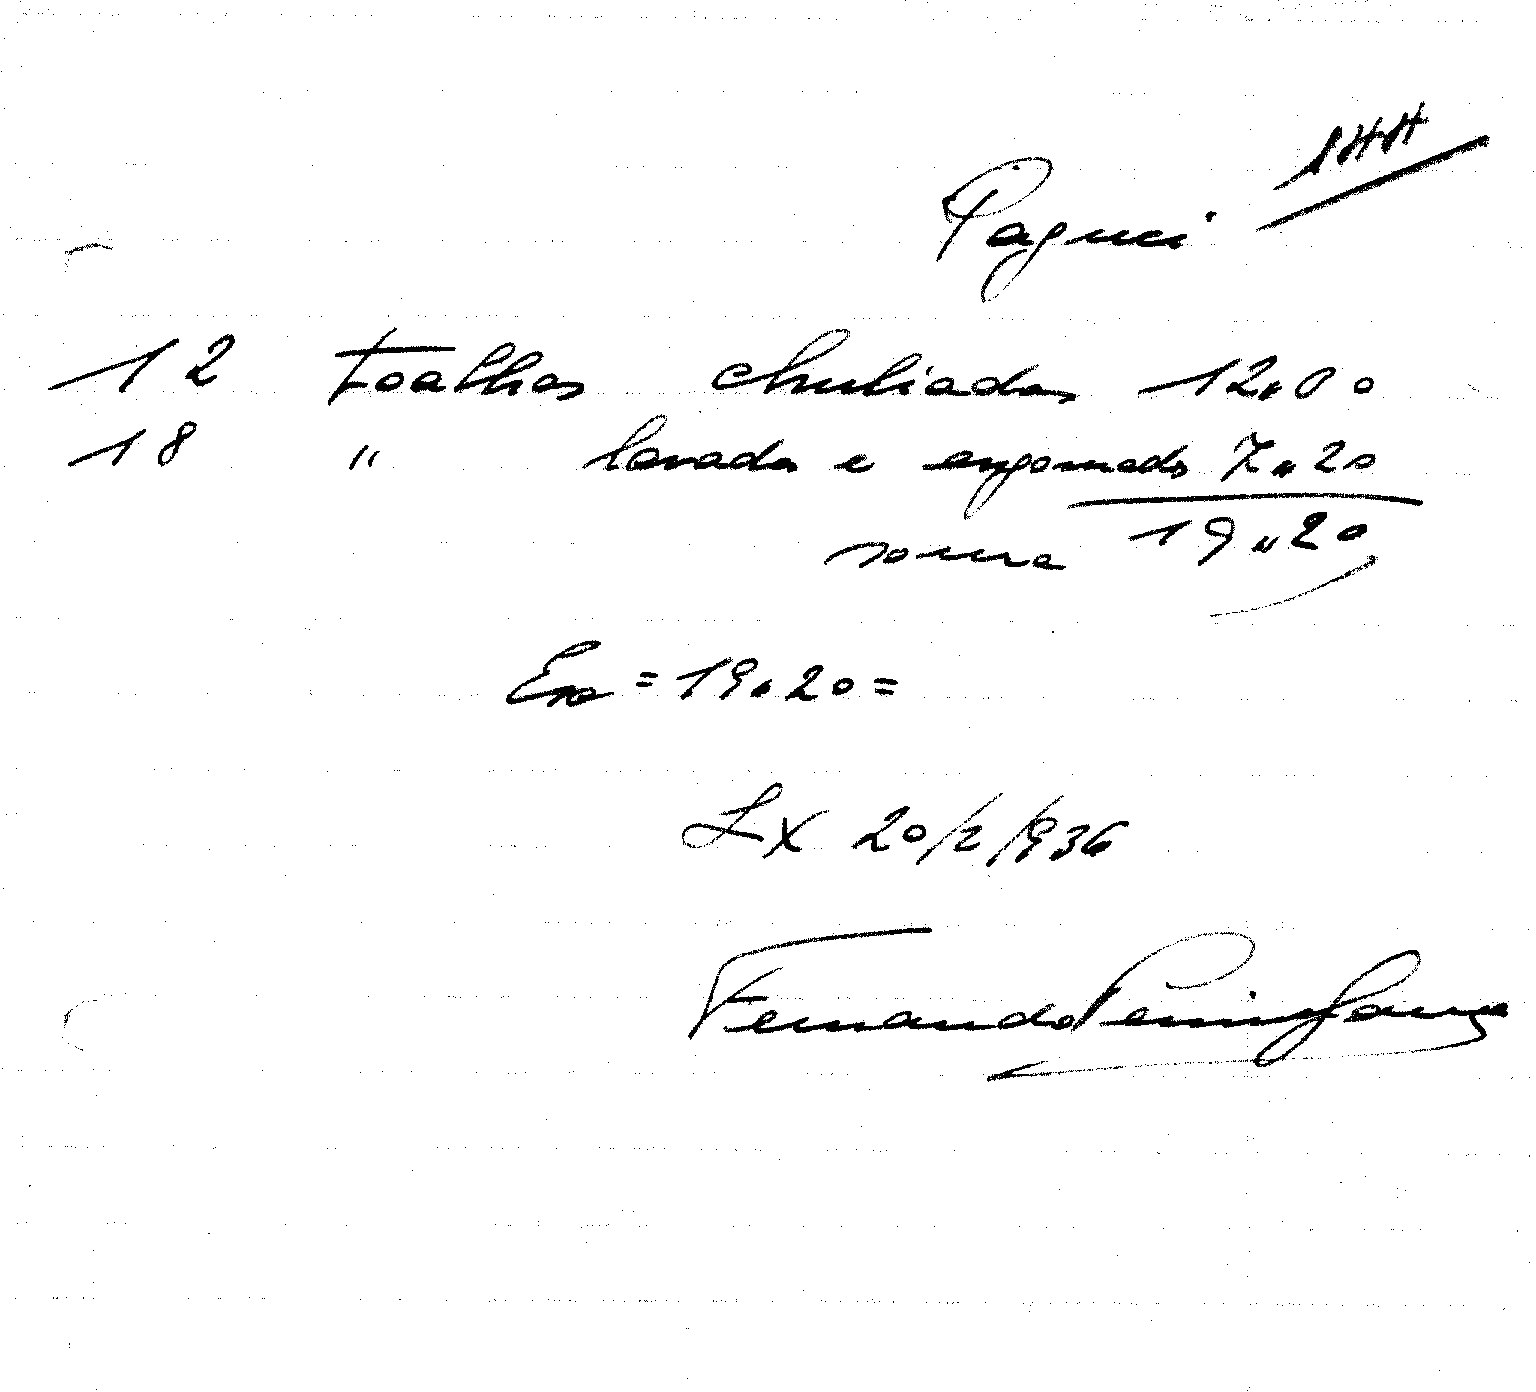 144
Paguei
12 toalhas chuliadas 12,,00
18 " lavadas e engomado 7,,20
soma 19,,20
= 19,,20 =
Lx 20/2/936
Fernando